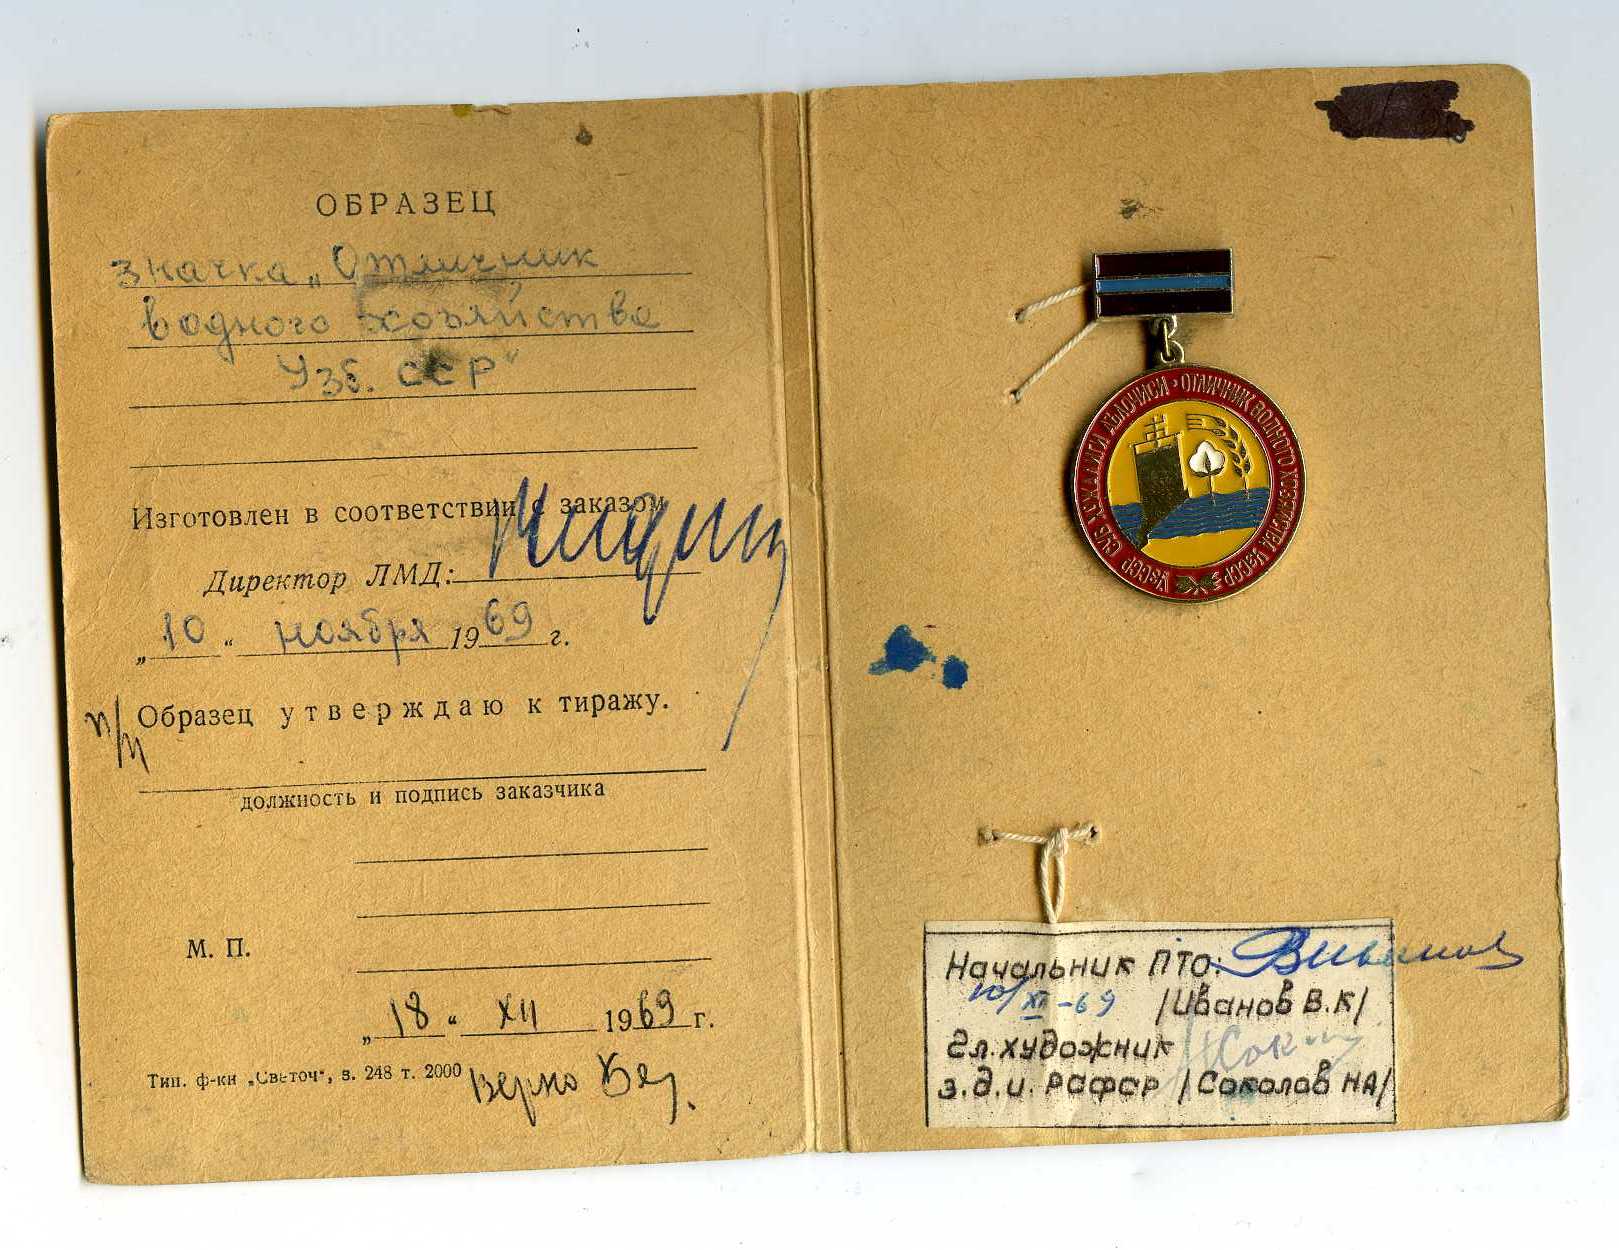 ОБРАЗЕЦ
значка „Отличник
водного хозяйства
Узб. ССР"
Изготовлен в соответствии с заказом
Директор ЛМД:
„10" ноября 1969 г.
п/п Образец утверждаю к тиражу.
должность и подпись заказчика
М. П.
„18" XII 1969 г.
Тип. ф-ки „Светоч", з. 248 т. 2000
Верно
УзССР СУВ ХУЖАЛИГИ АЪЛОЧИСИ · ОТЛИЧНИК ВОДНОГО ХОЗЯЙСТВА УзССР
Начальник ПТО:
10/XII-69 /Иванов В.К/
Гл. художник
з.д.и. РСФСР /Соколов НА/